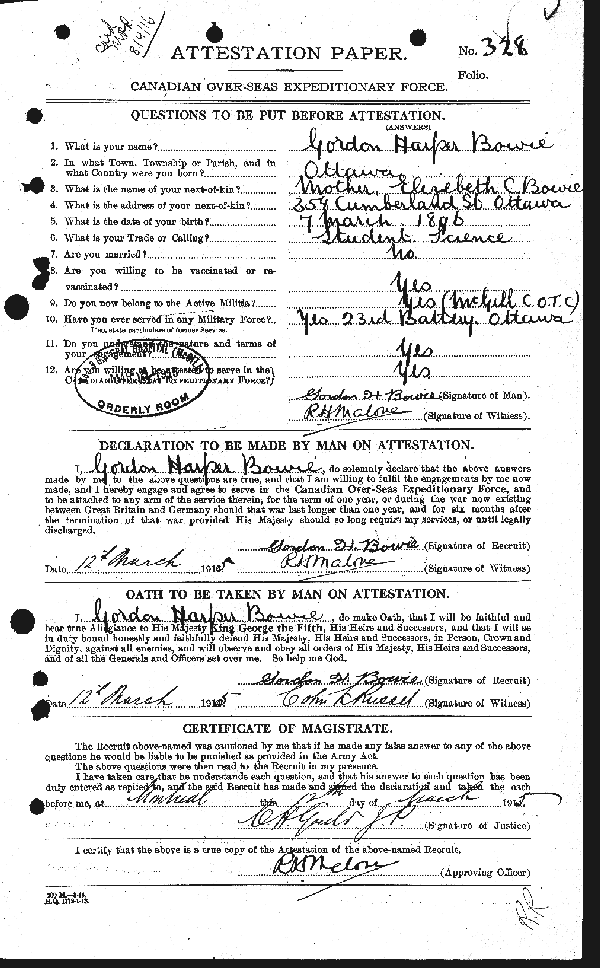 ATTESTATION PAPER.
No. 328
Folio.
CANADIAN OVER-SEAS EXPEDITIONARY FORCE.
QUESTIONS TO BE PUT BEFORE ATTESTATION.
(ANSWERS)
1. What is your name? Gordon Harper Bowie
2. In what Town, Township or Parish, and in
what Country were you born? Ottawa
3. What is the name of your next-of-kin? Mother, Elizabeth C Bowie
4. What is the address of your next-of-kin? 359 Cumberland St. Ottawa
5. What is the date of your birth? 7 March 1896
6. What is your Trade or Calling? Student Science
7. Are you married? No
8. Are you willing to be vaccinated or re-
vaccinated? Yes
9. Do you now belong to the Active Militia? Yes (McGill C.O.T.C)
10. Have you ever served in any Military Force? Yes 23rd Battery Ottawa
If so, state particulars of former Service.
11. Do you understand the nature and terms of
your engagement? Yes
12. Are you willing to be attested to serve in the
CANADIAN OVER-SEAS EXPEDITIONARY FORCE? Yes
ORDERLY ROOM
Gordon H Bowie (Signature of Man).
R H Malone (Signature of Witness).
DECLARATION TO BE MADE BY MAN ON ATTESTATION.
I, Gordon Harper Bowie, do solemnly declare that the above answers
made by me to the above questions are true, and that I am willing to fulfil the engagements by me now
made, and I hereby engage and agree to serve in the Canadian Over-Seas Expeditionary Force, and
to be attached to any arm of the service therein, for the term of one year, or during the war now existing
between Great Britain and Germany should that war last longer than one year, and for six months after
the termination of that war provided His Majesty should so long require my services, or until legally
discharged.
Gordon H. Bowie (Signature of Recruit)
Date 12th March 1915 R H Malone (Signature of Witness)
OATH TO BE TAKEN BY MAN ON ATTESTATION.
I, Gordon Harper Bowie, do make Oath, that I will be faithful and
bear true Allegiance to His Majesty King George the Fifth, His Heirs and Successors, and that I will as
in duty bound honestly and faithfully defend His Majesty, His Heirs and Successors, in Person, Crown and
Dignity, against all enemies, and will observe and obey all orders of His Majesty, His Heirs and Successors,
and of all the Generals and Officers set over me. So help me God.
Gordon H. Bowie (Signature of Recruit)
Date 12th March 1915 (Signature of Witness)
CERTIFICATE OF MAGISTRATE.
The Recruit above-named was cautioned by me that if he made any false answer to any of the above
questions he would be liable to be punished as provided in the Army Act.
The above questions were then read to the Recruit in my presence.
I have taken care that he understands each question, and that his answer to each question has been
duly entered as replied to, and the said Recruit has made and signed the declaration and taken the oath
before me, at Montreal this 12th day of March 1915
(Signature of Justice)
I certify that the above is a true copy of the Attestation of the above-named Recruit.
R H Malone (Approving Officer)